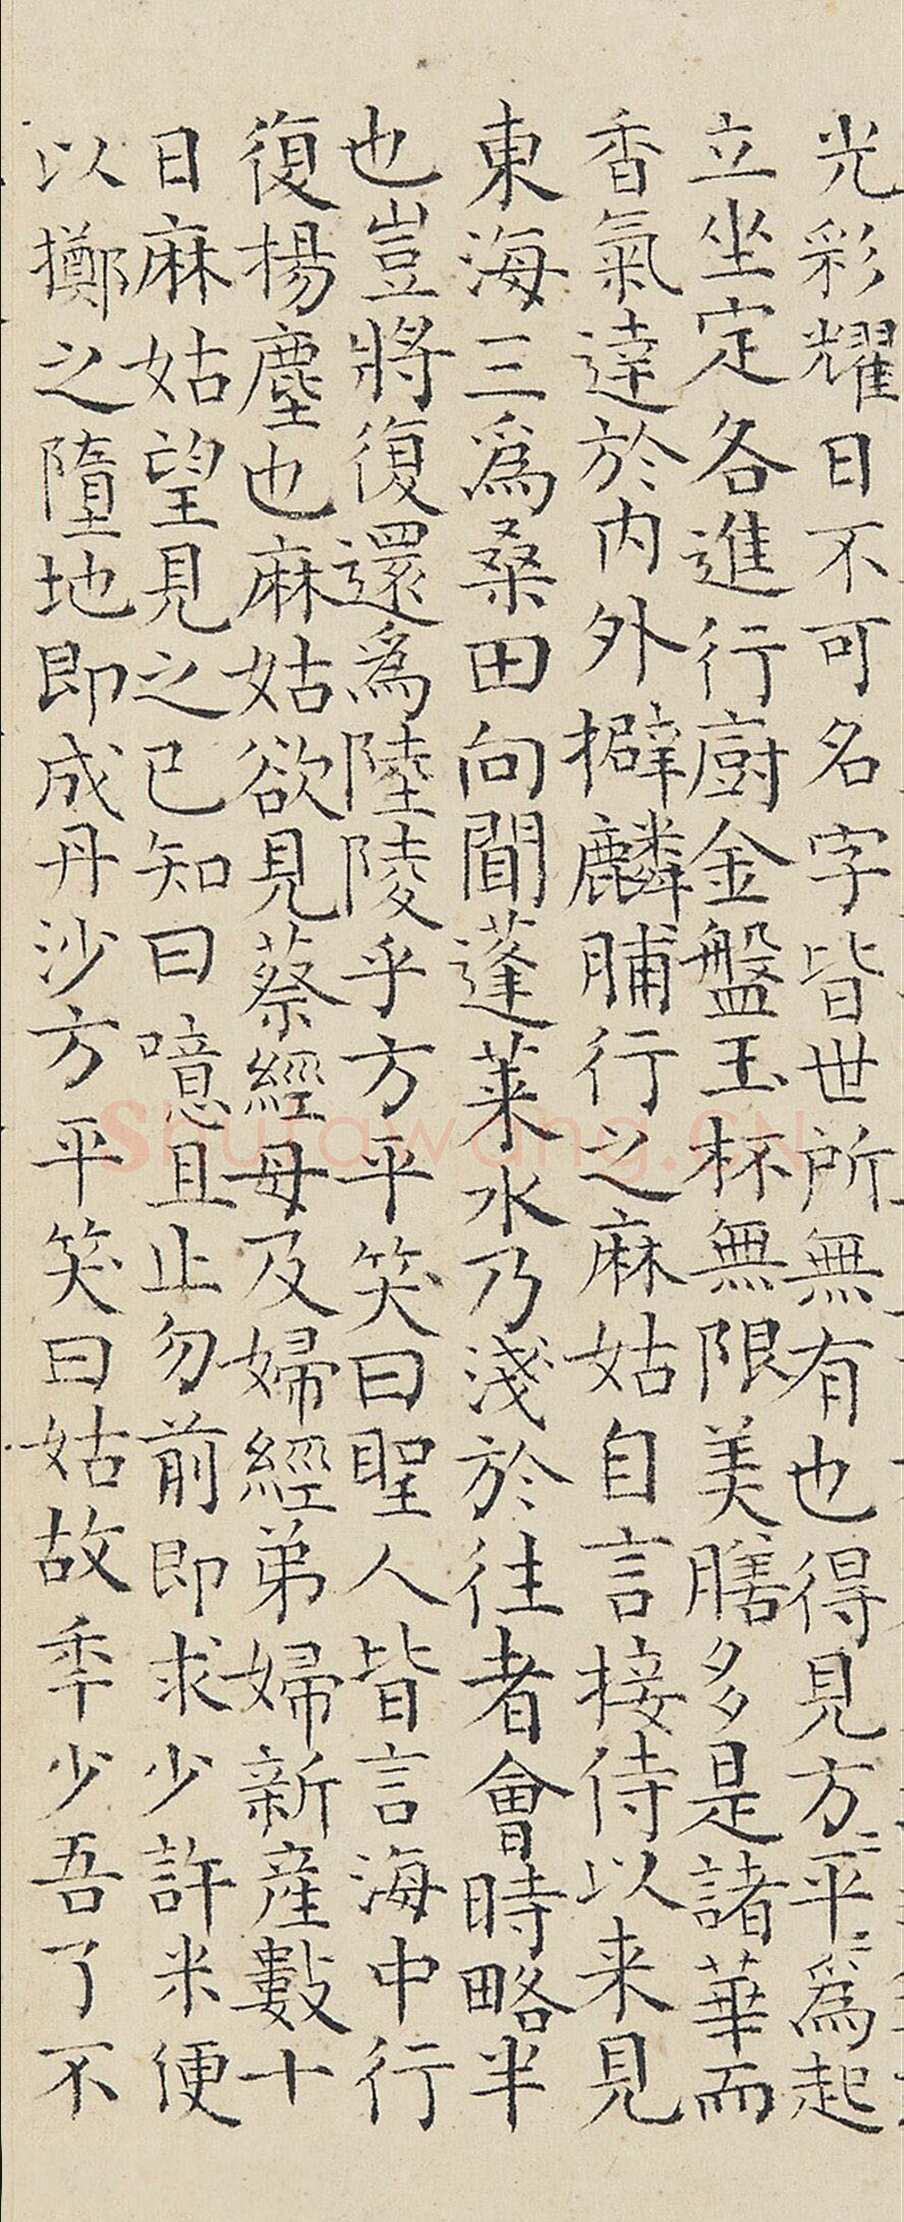 光彩耀日不可名字皆世所無有也得見方〻平〻為起
立坐定各進行廚金盤玉杯無限美膳多是諸華而
香氣達於内外擗麟脯行之麻姑自言接待以来見
東海三為桑田向間蓬莱水乃淺於往者會時略半
也豈將復還為陸陵乎方平笑曰聖人皆言海中行
復揚塵也麻姑欲見蔡經母及婦經弟婦新產數十
日麻姑望見之已知曰噫且止勿前即求少許米便
以擲之墮地即成丹沙方平笑曰姑故年少吾了不
Shufawang.CN